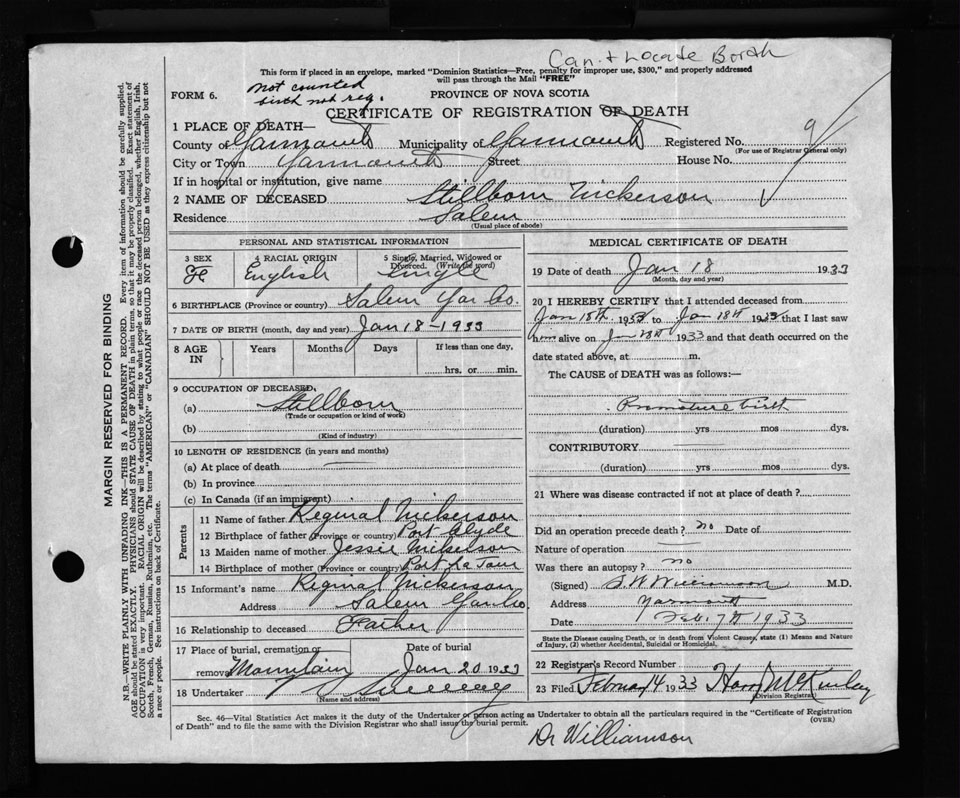 Can't Locate Borth
This form if placed in an envelope, marked "Dominion Statistics—Free, penalty for improper use, $300," and properly addressed
will pass through the Mail "FREE"
FORM 6.
not counted
birth not reg.
PROVINCE OF NOVA SCOTIA
CERTIFICATE OF REGISTRATION OF DEATH
1 PLACE OF DEATH—
County of Yarmouth Municipality of Yarmouth Registered No. 9
(For use of Registrar General only)
City or Town Yarmouth Street House No.
If in hospital or institution, give name
2 NAME OF DECEASED Stillborn Nickerson
Residence Salem
(Usual place of abode)
PERSONAL AND STATISTICAL INFORMATION
3 SEX 4 RACIAL ORIGIN 5 Single, Married, Widowed or
Divorced. (Write the word)
English Single
6 BIRTHPLACE (Province or country) Salem Yar Co.
7 DATE OF BIRTH (month, day and year) Jan 18 - 1933
8 AGE IN Years Months Days If less than one day,
hrs. or min.
9 OCCUPATION OF DECEASED,
(a) Stillborn
(Trade or occupation or kind of work)
(b)
(Kind of industry)
10 LENGTH OF RESIDENCE (in years and months)
(a) At place of death
(b) In province
(c) In Canada (if an immigrant)
Parents
11 Name of father Reginal Nickerson
12 Birthplace of father (Province or country) Port Clyde
13 Maiden name of mother Jessie Nickerson
14 Birthplace of mother (Province or country) Port La Tour
15 Informant's name Reginal Nickerson
Address Salem Yar Co.
16 Relationship to deceased Father
17 Place of burial, cremation or removal Mountain
Date of burial Jan 20 1933
18 Undertaker
(Name and address)
MEDICAL CERTIFICATE OF DEATH
19 Date of death Jan 18 1933
(Month, day and year)
20 I HEREBY CERTIFY that I attended deceased from
Jan 18th 1933 to Jan 18th 1933 that I last saw
h alive on 1933 and that death occurred on the
date stated above, at m.
The CAUSE of DEATH was as follows:—
Premature birth
(duration) yrs mos dys.
CONTRIBUTORY
(duration) yrs mos dys.
21 Where was disease contracted if not at place of death?
Did an operation precede death? no Date of
Nature of operation
Was there an autopsy? no
(Signed) S.W. Williamson M.D.
Address Yarmouth
Date Feb. 7th 1933
State the Disease causing Death, or in death from Violent Causes, state (1) Means and Nature
of Injury, (2) whether Accidental, Suicidal or Homicidal.
22 Registrar's Record Number
23 Filed February 4 1933 Harry McKinley
(Division Registrar)
Sec. 46—Vital Statistics Act makes it the duty of the Undertaker or person acting as Undertaker to obtain all the particulars required in the "Certificate of Registration
of Death" and to file the same with the Division Registrar who shall issue the burial permit.
(OVER)
Dr Williamson
MARGIN RESERVED FOR BINDING
N.B.—WRITE PLAINLY WITH UNFADING INK—THIS IS A PERMANENT RECORD. Every item of information should be carefully supplied.
AGE should be stated EXACTLY. PHYSICIANS should STATE CAUSE OF DEATH in plain terms, so that it may be properly classified. Exact statement of
OCCUPATION is very important. RACIAL ORIGIN will be described by stating to what people or race the deceased person belonged, whether English, Irish,
Scotch, French, German, Russian, Ruthenian, etc. The terms "AMERICAN" or "CANADIAN" SHOULD NOT BE USED as they express citizenship but not
a race or people. See instructions on back of Certificate.